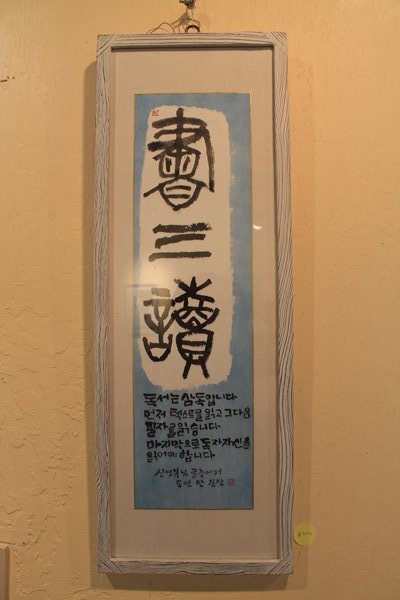 書三讀
독서는 삼독입니다
먼저 텍스트를 읽고 그다음
필자를 읽습니다
마지막으로 독자 자신을
읽어야 합니다
신영복님 글중에서